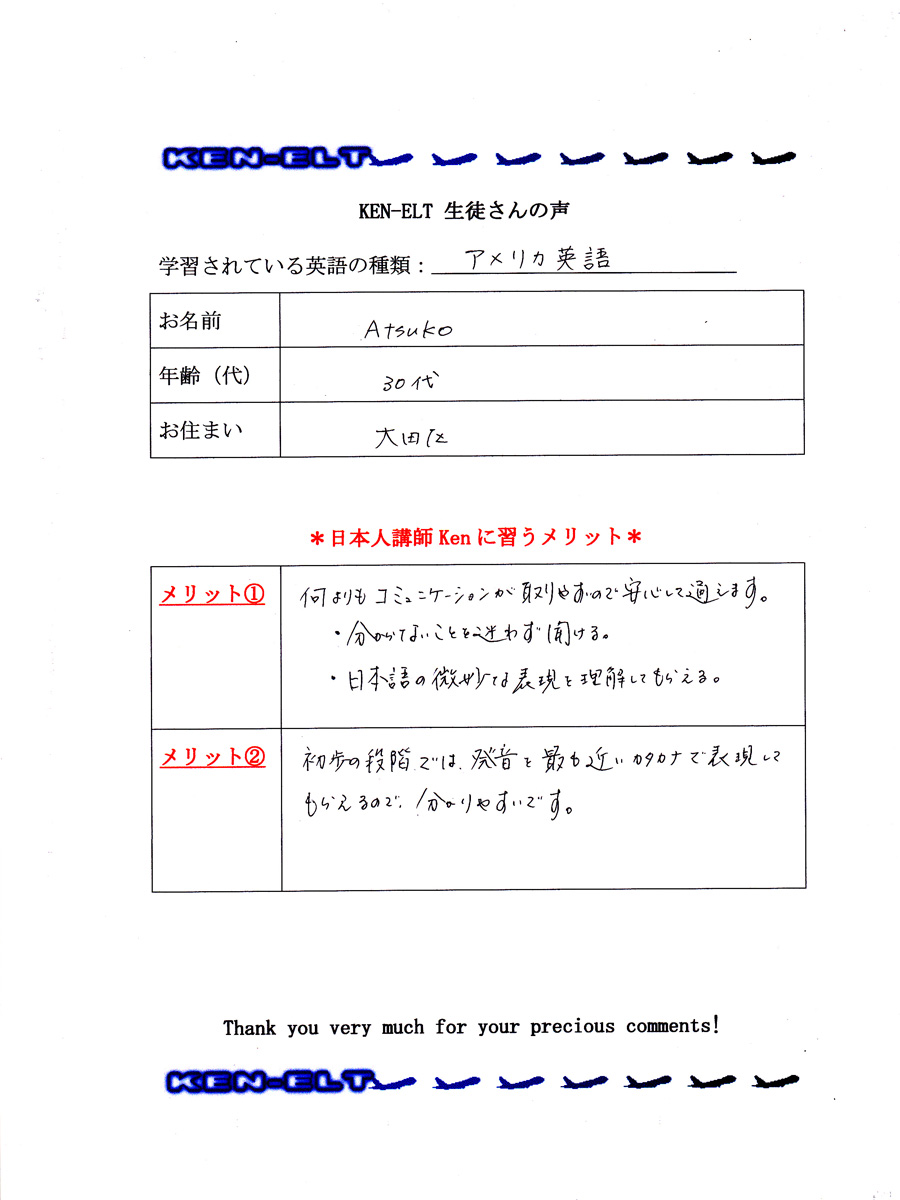 KEN-ELT
KEN-ELT 生徒さんの声
学習されている英語の種類：アメリカ英語
お名前 Atsuko
年齢（代） 30代
お住まい 大田区
＊日本人講師Kenに習うメリット＊
メリット① 何よりもコミュニケーションが取りやすいので安心して通えます。
・分からないことを迷わず聞ける。
・日本語の微妙な表現を理解してもらえる。
メリット② 初歩の段階では、発音を最も近いカタカナで表現して
もらえるので、分かりやすいです。
Thank you very much for your precious comments!
KEN-ELT